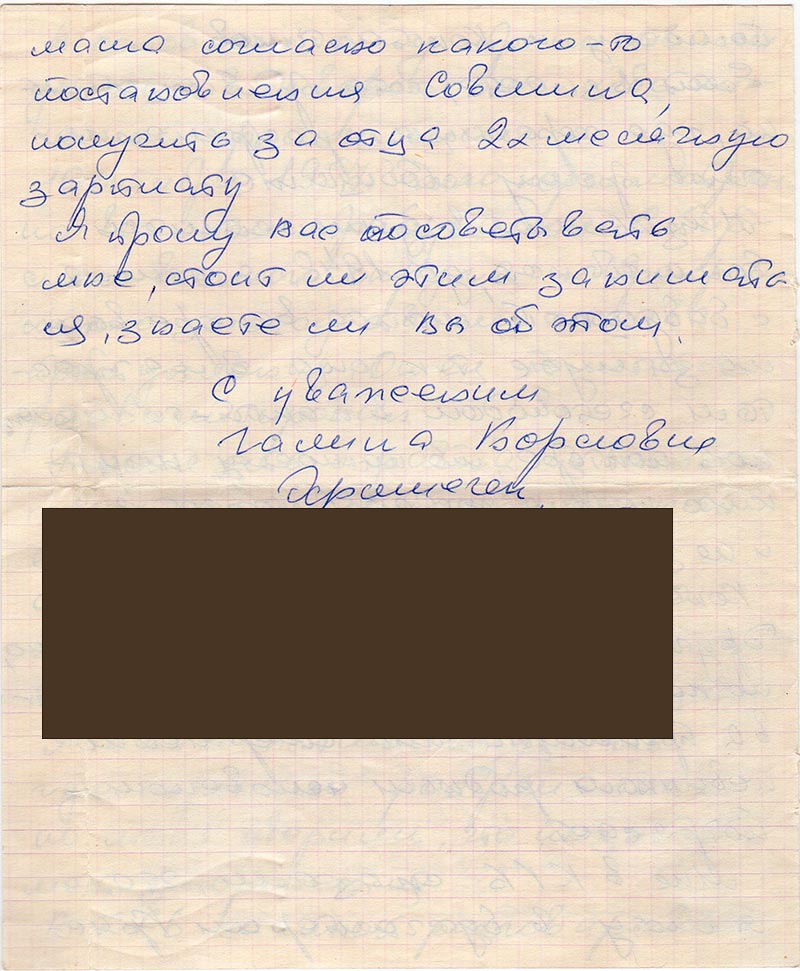 мама согласно какого-то
постановления Совмина,
получить за отца 2х месячную
зарплату
Я прошу вас посоветывать
мне, стоит ли этим занимать
ся, знаете ли Вы об этом.
С уважением
Галина Борисовна